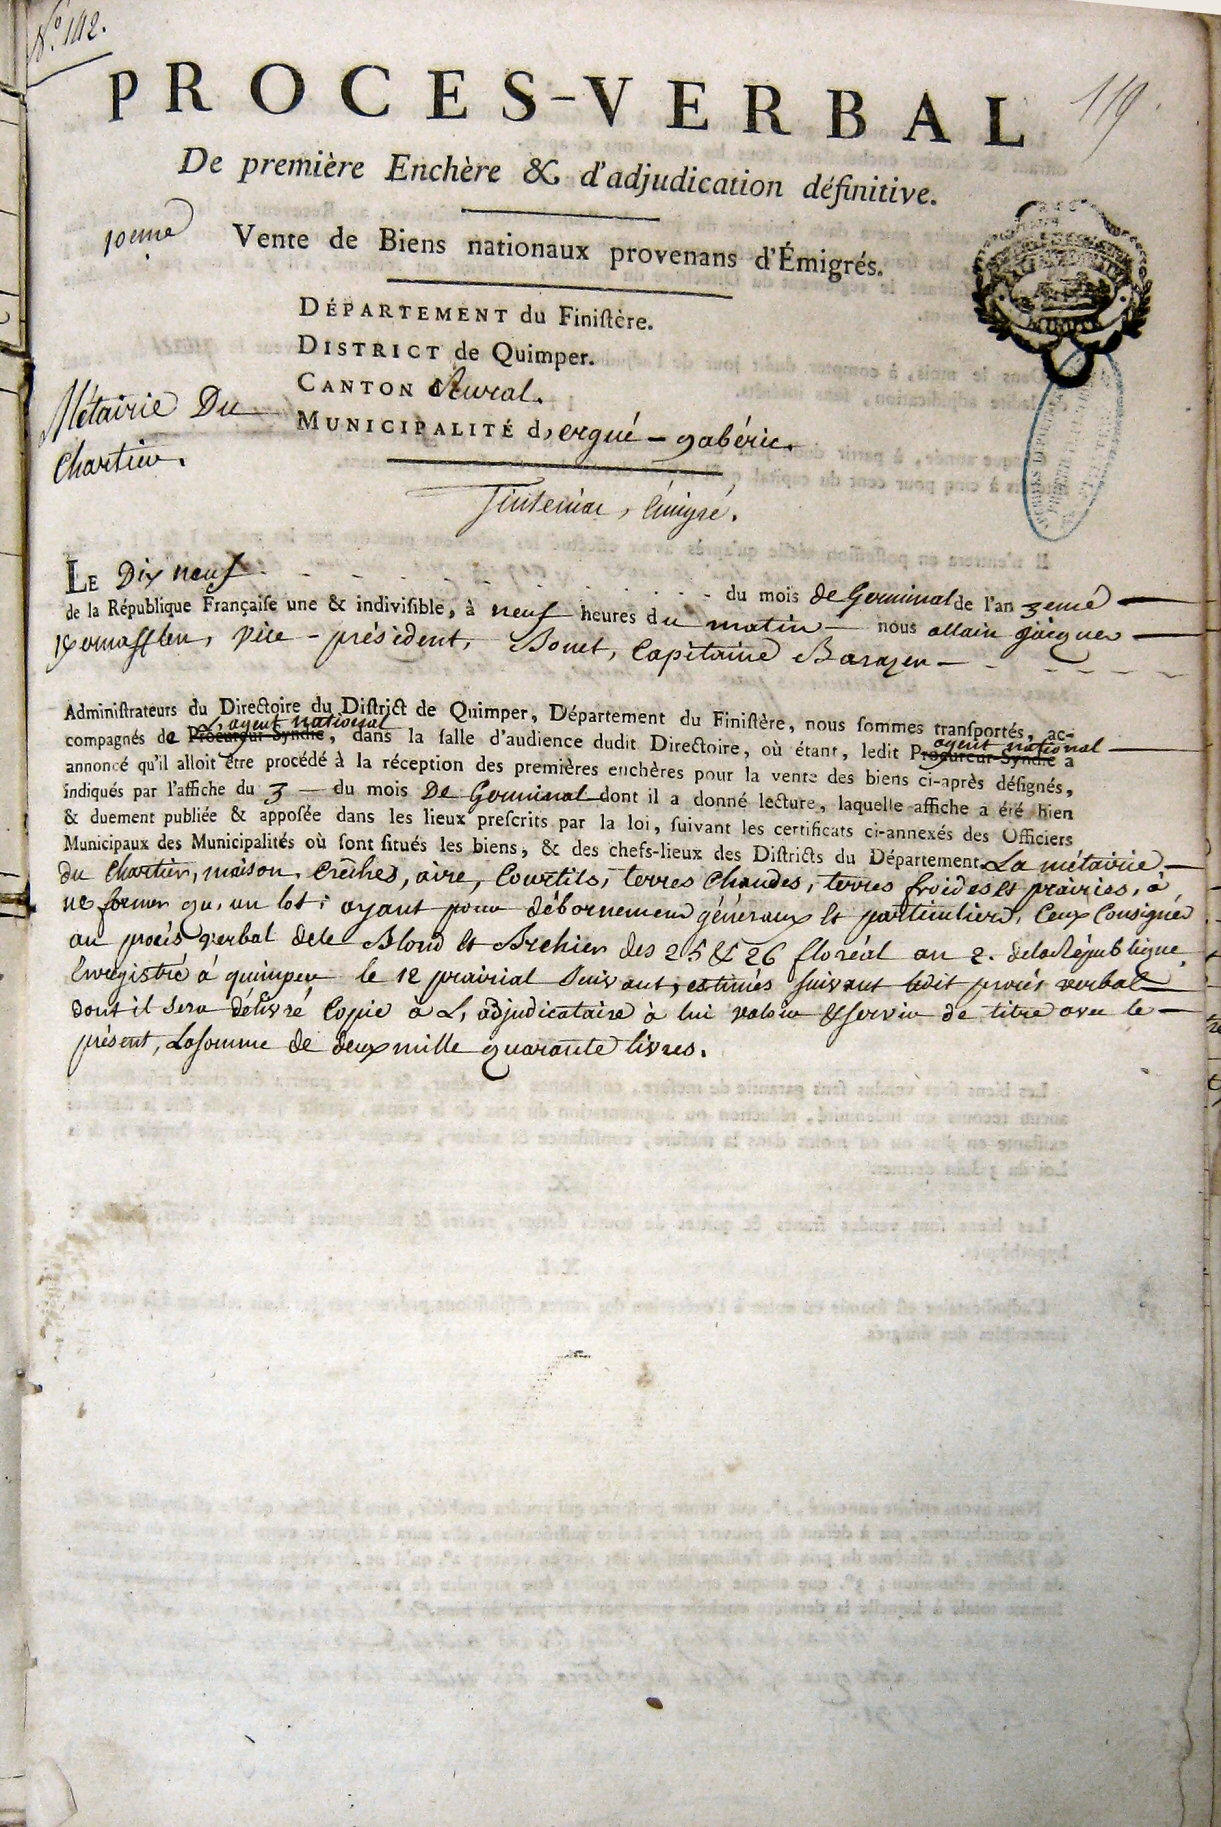 N.o 142.
119.
PROCES-VERBAL
De première Enchère & d'adjudication définitive.
10eme
Vente de Biens nationaux provenans d'Émigrés.
DÉPARTEMENT du Finistère.
DISTRICT de Quimper.
CANTON Rural.
MUNICIPALITÉ d, ergué - gabéric.
Métairie Du
Chartier.
Tinteniac, émigré.
LE Dix neuf du mois de Germinal de l'an 3eme
de la République Française une & indivisible, à neuf heures du matin nous allain jacques
vice-président, Bonet, Capitaine Barazer
Administrateurs du Directoire du District de Quimper, Département du Finistère, nous sommes transportés, ac-
L, agent national agent national
compagnés de Procureur-Syndic, dans la salle d'audience dudit Directoire, où étant, ledit Procureur-Syndic a
annoncé qu'il alloit être procédé à la réception des premières enchères pour la vente des biens ci-après désignés,
indiqués par l'affiche du 3 du mois De Germinal dont il a donné lecture, laquelle affiche a été bien
& duement publiée & apposée dans les lieux prescrits par la loi, suivant les certificats ci-annexés des Officiers
Municipaux des Municipalités où sont situés les biens, & des chefs-lieux des Districts du Département. La métairie
du Chartier, maison, Crêches, aire, Courtils, terres chaudes, terres froides et prairies, à
ne former qu, un lot; ayant pour débornemens généraux et particuliers, Ceux Consignés
au procès verbal de le Blond et Brehier des 25 & 26 floréal an 2. de la République,
Enregistré à quimper le 12 prairial suivant; estimés suivant ledit procès verbal
dont il sera délivré Copie à L, adjudicataire à lui valoir & servir de titre avec le
présent, La somme de deux mille quarante livres.